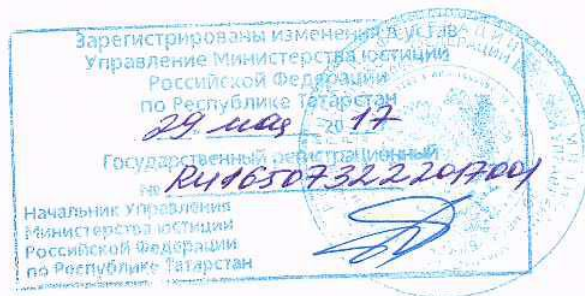 Зарегистрированы изменения в устав
Управление Министерства юстиции
Российской Федерации
по Республике Татарстан
29 мая 2017
Государственный регистрационный
№ RU165073222017001
Начальник Управления
Министерства юстиции
Российской Федерации
по Республике Татарстан